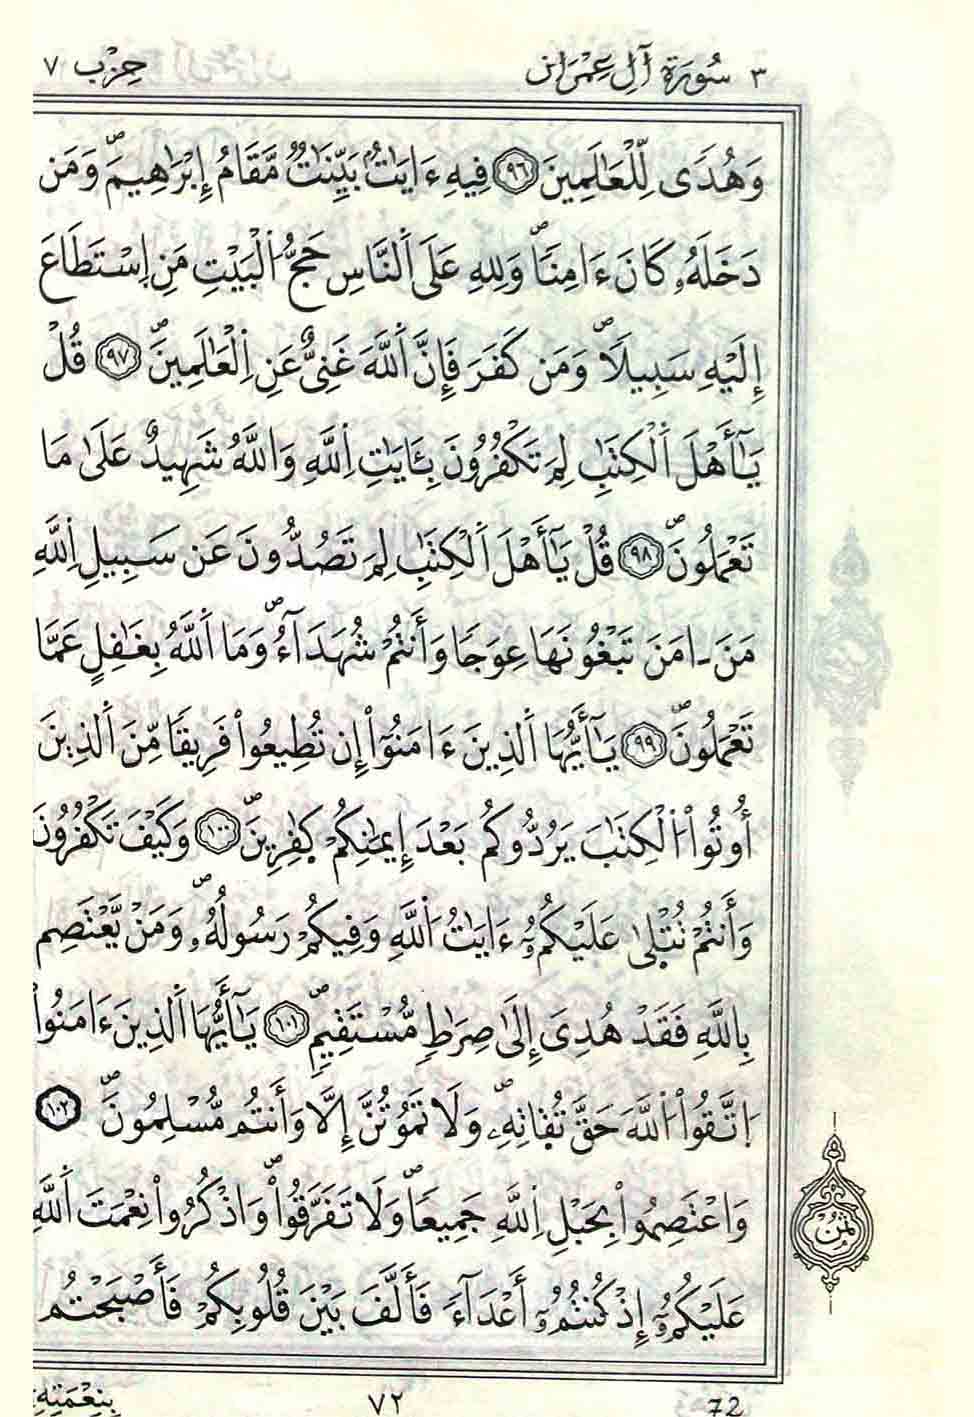 ٣ سُورَةُ آلِ عِمْرَان حِزْب ٧
وَهُدًى لِّلْعَٰلَمِينَ ٩٦ فِيهِ ءَايَٰتُۢ بَيِّنَٰتٌ مَّقَامُ إِبْرَٰهِيمَۖ وَمَن
دَخَلَهُۥ كَانَ ءَامِناًۖ وَلِلهِ عَلَى اَلنَّاسِ حَجُّ اُلْبَيْتِ مَنِ اِسْتَطَاعَ
إِلَيْهِ سَبِيلاًۖ وَمَن كَفَرَ فَإِنَّ اَللَّهَ غَنِيٌّ عَنِ اِلْعَٰلَمِينَۖ ٩٧ قُلْ
يَٰٓأَهْلَ اَلْكِتَٰبِ لِمَ تَكْفُرُونَ بِـَٔايَٰتِ اِللَّهِ وَاللَّهُ شَهِيدٌ عَلَىٰ مَا
تَعْمَلُونَۖ ٩٨ قُلْ يَٰٓأَهْلَ اَلْكِتَٰبِ لِمَ تَصُدُّونَ عَن سَبِيلِ اِللَّهِ
مَنَ ـ امَنَ تَبْغُونَهَا عِوَجاً وَأَنتُمْ شُهَدَآءُۖ وَمَا اَللَّهُ بِغَٰفِلٍ عَمَّا
تَعْمَلُونَۖ ٩٩ يَٰٓأَيُّهَا اَلذِينَ ءَامَنُوٓاْ إِن تُطِيعُواْ فَرِيقاً مِّنَ اَلذِينَ
أُوتُواْ اُلْكِتَٰبَ يَرُدُّوكُم بَعْدَ إِيمَٰنِكُمْ كَٰفِرِينَۖ ١٠٠ وَكَيْفَ تَكْفُرُونَ
وَأَنتُمْ تُتْلَىٰ عَلَيْكُمُۥٓ ءَايَٰتُ اُللَّهِ وَفِيكُمْ رَسُولُهُۥۖ وَمَنْ يَّعْتَصِم
بِاللَّهِ فَقَدْ هُدِيَ إِلَىٰ صِرَٰطٍ مُّسْتَقِيمٍۖ ١٠١ يَٰٓأَيُّهَا اَلذِينَ ءَامَنُواْ
اُتَّقُواْ اُللَّهَ حَقَّ تُقَاتِهِۦۖ وَلَا تَمُوتُنَّ إِلَّا وَأَنتُم مُّسْلِمُونَۖ ١٠٢
وَاعْتَصِمُواْ بِحَبْلِ اِللَّهِ جَمِيعاًۖ وَلَا تَفَرَّقُواْۖ وَاذْكُرُواْ نِعْمَتَ اَللَّهِ
ثُمُن
عَلَيْكُمُۥٓ إِذْ كُنتُمُۥٓ أَعْدَآءً فَأَلَّفَ بَيْنَ قُلُوبِكُمْ فَأَصْبَحْتُم
بِنِعْمَتِهِۦ ٧٢ 72